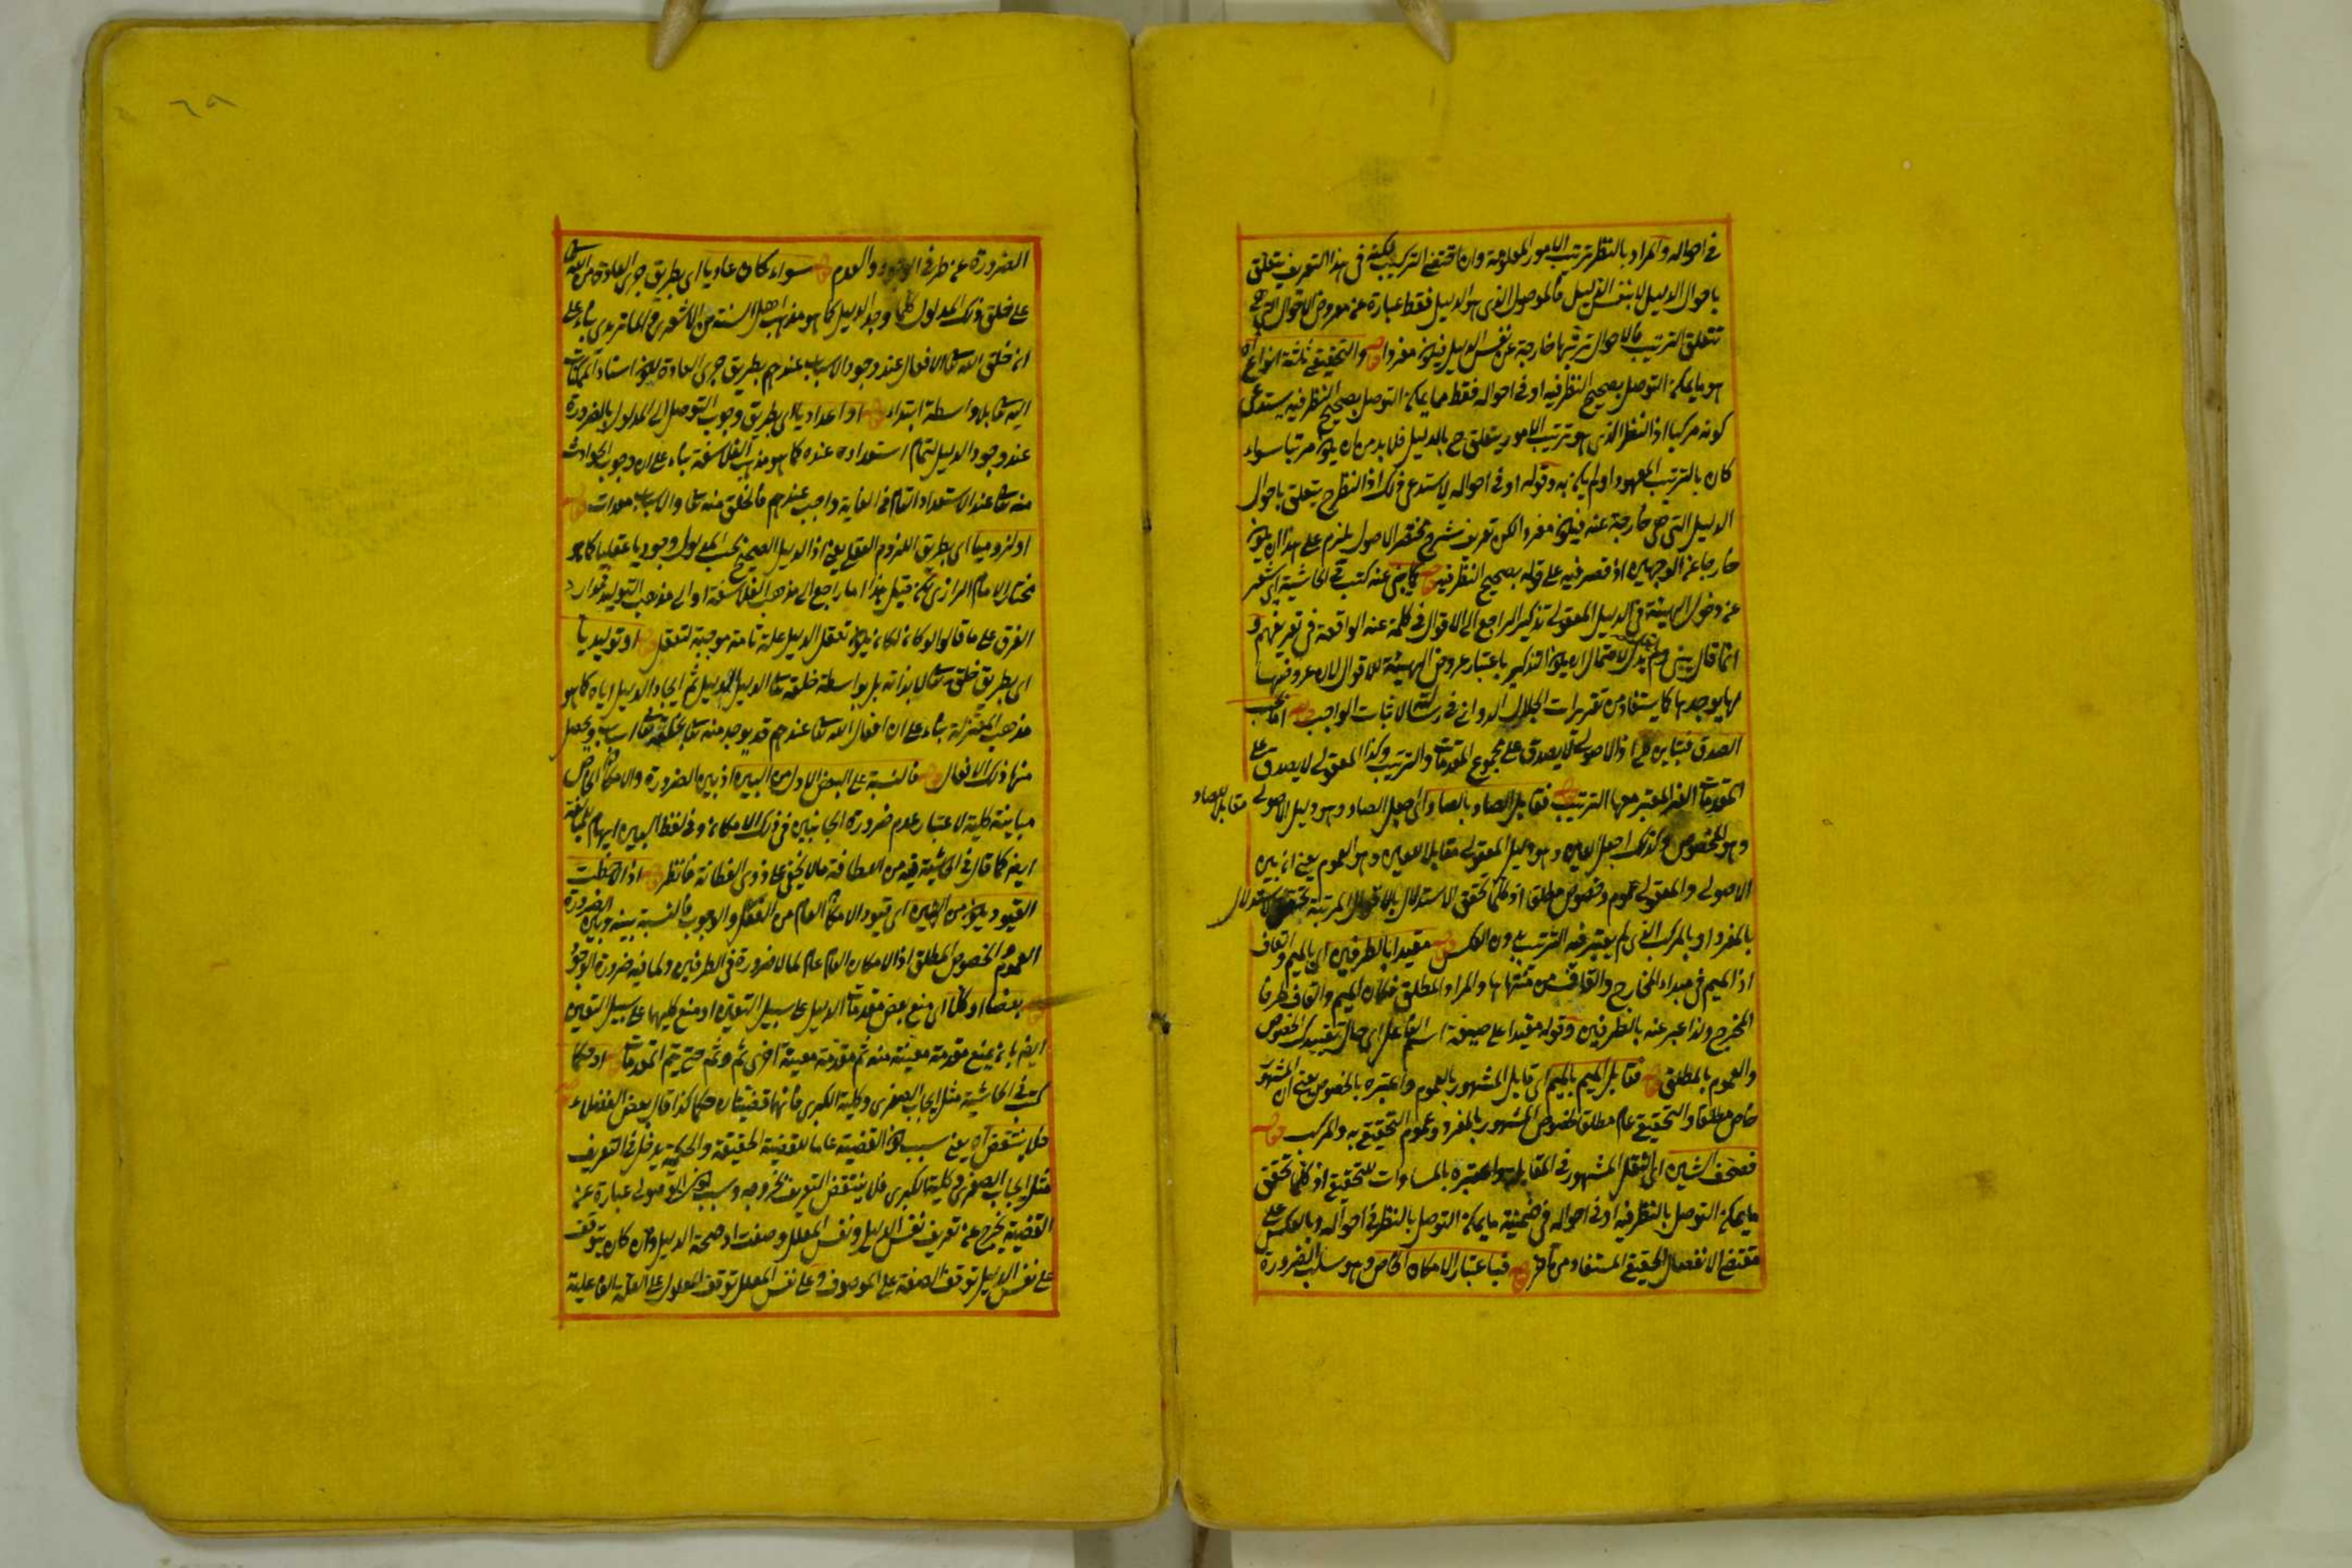 في احواله والمراد بالنظر ترتيب الامور المعلومة وان اقتضى التركيب لكنه في هذا التعريف يتعلق
باحوال الدليل لا بنفس الدليل فالموصول الذي هو الدليل فقط عبارة عن معروض الاحوال التي هي
تتعلق الترتيب فالاحوال خارجة عن نفس الدليل فيكون مفردا قوله والتحقيقي ثلثة انواع اه
هو ما يمكن التوصل بصحيح النظر فيه او في احواله فقط مما يمكن التوصل بصحيح النظر فيه يستدعي
كونه مركبا اذ النظر الذي هو ترتيب الامور يتعلق ح بالدليل فلا بد من ان يكون مرتبا سواء
كان بالترتيب المعهود او لم يكن به وقوله او في احواله لا يستدعي ذلك اذ النظر ح يتعلق باحوال
الدليل التي هي خارجة عنه فيكون مفردا لكن تعريف شرح مختصر الاصول يلزم على هذا ان يكون
خارجا عن الوجهين اذ قصر فيه على قوله بصحيح النظر فيه قوله كتب في الحاشية اي
عن دخول الهيئة في الدليل المعقولي تذكير الراجع الى الاقوال في كلمة عنه الواقعة في تعريفهم و
انما قال لاحتمال ان يكون التذكير باعتبار عروض الهيئة للاقوال لان عروضها
لها يوجدها كما يستفاد من تقريرات الجلال الدواني في رسالة اثبات الواجب قوله اما بحسب
الصدق فتباين كلي اذ الاصولي لا يصدق على مجموع المقدمات والترتيب وكذا المعقولي لا يصدق على
المقدمات الغير المعتبر معها الترتيب قوله فقابل الصاد بالصاد اي اجعل الصاد وهو دليل الاصولي مقابلا للصاد
وهو الخصوص وكذلك اجعل العين وهو دليل المعقولي مقابلا للعين وهو العموم يعني ان بين
الاصولي والمعقولي عموم وخصوص مطلق اذ كلما تحقق الاستدلال بالاقوال المرتبة تحقق الاستدلال
بالمفرد او بالمركب الذي لم يعتبر فيه الترتيب بدون العكس قوله مقيدا بالطرفين اي بالميم والقاف
اذ الميم في مبداء المخارج والقاف من منتهاها والمراد المطلق فكان الميم والقاف طرفا
المخرج ولذا عبر عنه بالطرفين وقوله مقيدا على صيغة اسم الفاعل اي حال تقييدك الخصوص
والعموم بالمطلق قوله فقابل الميم بالميم اي قابل المشهور بالعموم واعتبره بالخصوص يعني ان المشهور
خاص مطلقا والتحقيقي عام مطلق لخصوص المشهور بالمفرد وعموم التحقيقي به والمركب قوله
فصحف الشين اي انقل المشهور في المقابلة واعتبره بالمساوات للتحقيقي اذ كلما تحقق
ما يمكن التوصل بالنظر فيه او في احواله في ضمنية ما يمكن التوصل بالنظر في احواله وبالعكس على
مقتضى الانفصال الحقيقي المستفاد من قوله فباعتبار الامكان الخاص وهو سلب الضرورة
٦٨
الضرورة عن طرفي الوجود والعدم قوله سواء كان عاديا اي بطريق جري العادة من الله تعالى
على خلق ذلك المدلول كلما وجد الدليل كما هو مذهب اهل السنة من الاشعري والماتريدي بناء على
ان خلق الله تعالى الافعال عند وجود الاسباب عندهم بطريق جري العادة لكون استناد الممكنات
اليه تعالى بلا واسطة ابتداء قوله او اعداديا اي بطريق وجوب التوصل الى المدلول بالضرورة
عند وجود الدليل لتمام استعداده عنده كما هو مذهب الفلاسفة بناء على ان وجوب الحوادث
منه تعالى عند الاستعداد التام في الغاية واجب عندهم فالخلق منه تعالى والاسباب معدات قوله
او لزوميا اي بطريق اللزوم العقلي يعني اذ الدليل الصحيح المدلول وجوبا عقليا كما هو
مختار الامام الرازي لكن قيل هذا اما راجع الى مذهب الفلاسفة او الى مذهب التوليد
الفرق على ما قالوا تعقل الدليل علة تامة موجبة لتعقل قوله او توليديا
اي بطريق خلق تعالى لا بذاته بل بواسطة خلقه تعالى الدليل ثم ايجاد الدليل اياه كما هو
مذهب المعتزلة بناء على ان افعال الله تعالى عندهم قد يوجد منه تعالى بخلقه تعالى اسباب ويحصل
منها ذلك الافعال قوله فالنسبة على البعض الاول من البين اذ بين الضرورة والامكان الخاص
مباينة كلية لاعتبار عدم ضرورة الجانبين في ذلك الامكان وفي لفظ البين ايهام للمبالغة
ايضا كما قال في الحاشية فيه من اللطافة ما لا يخفى على ذوي الفطانة فانظر قوله اذ لاحظت
القيود يكون من الشين اي قيود الامكان العام من الفعل والوجوب فالنسبة بينه وبين الضرورة
العموم والخصوص المطلق اذ الامكان العام عام لما لا ضرورة في الطرفين ولما فيه ضرورة الوجود
قوله بعضا او كلا اي منع بعض مقدمات الدليل على سبيل التعيين او منع كليهما على سبيل التعيين
ايضا بان يمنع مقدمة معينة منه ثم مقدمة معينة اخرى ثم وثم حتى تتم المقدمات قوله او حكما
كتب في الحاشية مثل ايجاب الصغرى وكلية الكبرى فانهما قضيتان حكما كذا قال بعض الفضلاء قوله
فلا ينتقض اه يعني سبب كون القضية عاما للقضية الحقيقة والحكمية يدخل في التعريف
مثل ايجاب الصغرى وكلية الكبرى فلا ينتقض التعريف بخروجه وسبب كون الموصول عبارة عن
القضية يخرج عن تعريف نفس الدليل ونفس المعلل وصفت او صحة الدليل وان كان يتوقف
على نفس الدليل توقف الصفة على الموصوف وعلى نفس المعلل توقف المعلول على العلة الفاعلية